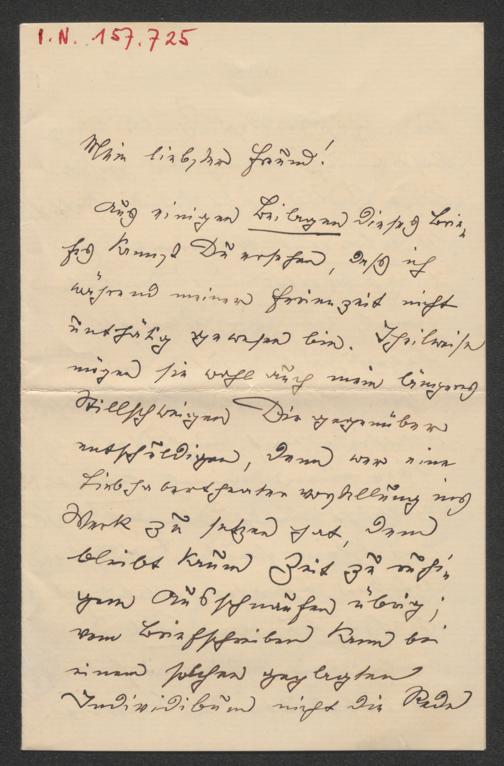 I.N. 157.725
Mein liebster Freund!
Aus einigen Beilagen dieses Brie-
fes kannst Du ersehen, daß ich
während meiner Ferienzeit nicht
unthätig gewesen bin. Theilweise
mögen sie wohl auch mein längeres
Stillschweigen Dir gegenüber
entschuldigen, denn wer eine
Liebhabertheatervorstellung ins
Werk zu setzen hat, dem
bleibt kaum Zeit zu ruhi-
gem Aufschnaufen übrig;
vom Briefschreiben kann bei
einem solchen geplagten
Individibum nicht die Rede